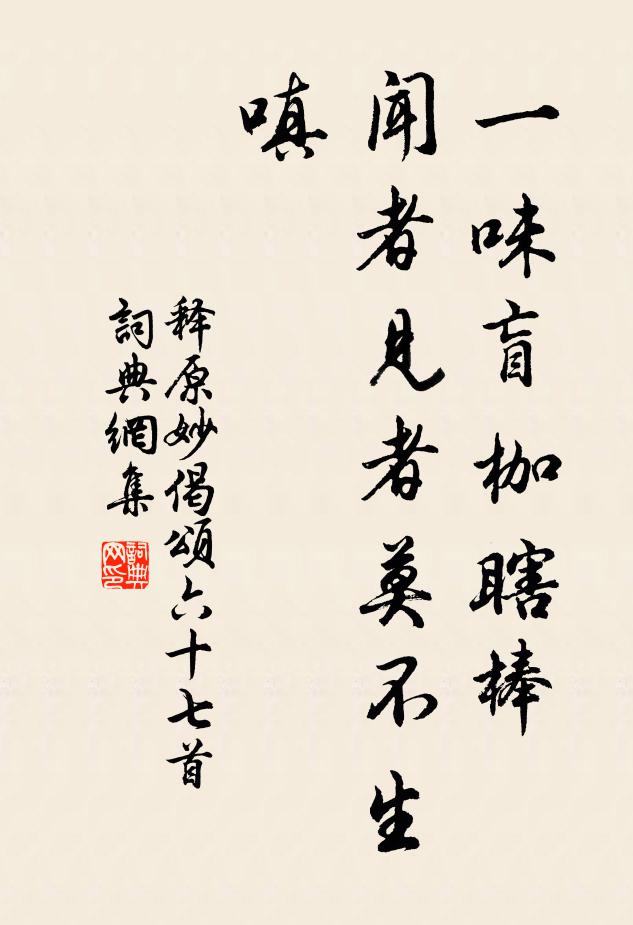 一味盲枷瞎棒
聞者見者莫不生
嗔
释原妙偈頌六十七首
詞典網集
詞典网印